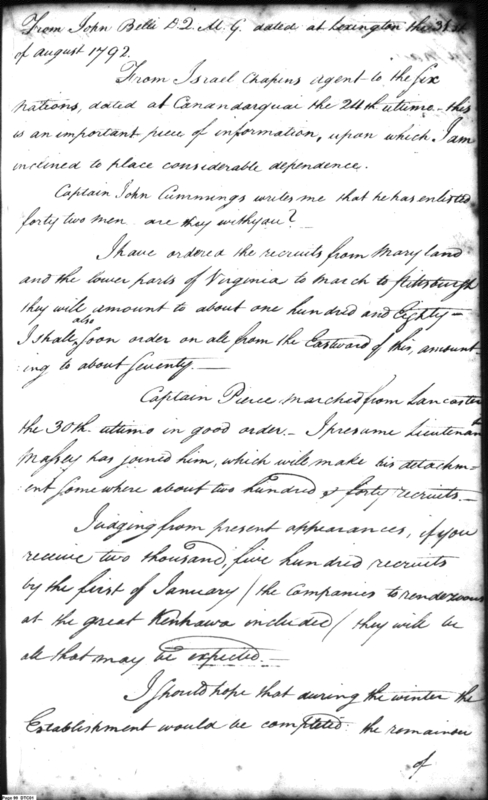 From John Belli D. Q. M. G. dated at Lexington the 31st
of August 1792.
From Israel Chapins agent to the six
nations, dated at Canandarquai the 24th ultimo - this
is an important piece of information, upon which I am
inclined to place considerable dependence.
Captain John Cummings writes me that he has enlisted
forty two men - are they with you? -
I have ordered the recruits from Maryland
and the lower parts of Virginia to march to Pittsburgh
they will amount to about one hundred and Eighty -
I shall also soon order on all from the Eastward of this, amount-
ing to about Seventy. -
Captain Pierce marched from Lancaster
the 30th. utimo in good order. - I presume Lieutenant
Massey has joined him, which will make his detachm-
ent somewhere about two hundred & forty recruits. -
Judging from present appearances, if you
receive two thousand, five hundred recruits
by the first of January / the Companies to rendezvous
at the great Kenhawa included / they will be
all that may be expected. -
I should hope that during the winter the
Establishment would be completed: the remainder
of
Page 96 DTC01